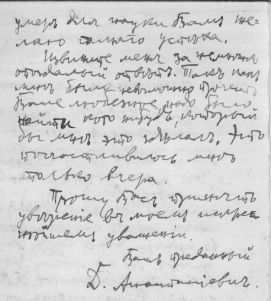 умерь для науки Вамъ же-
лаю полнаго успѣха.
Извините меня за немного
опоздалый отвѣтъ. Такъ какъ
мнѣ было невозможно прочесть
Ваше любезное, надо было
найти кого нибудь, который
бы мнѣ это сдѣлалъ. Это
посчастливилось мнѣ
только вчера.
Прошу Васъ принять
увѣреніе въ моемъ искрен
нѣйшемъ уваженіи.
Вамъ преданный
Д.